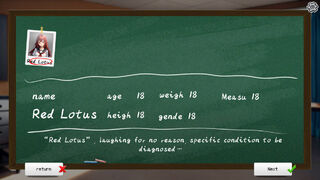 Red Lotus
name age 18 weigh 18 Measu 18
Red Lotus heigh 18 gende 18
"Red Lotus" , laughing for no reason, specific condition to be
diagnosed…
return Next